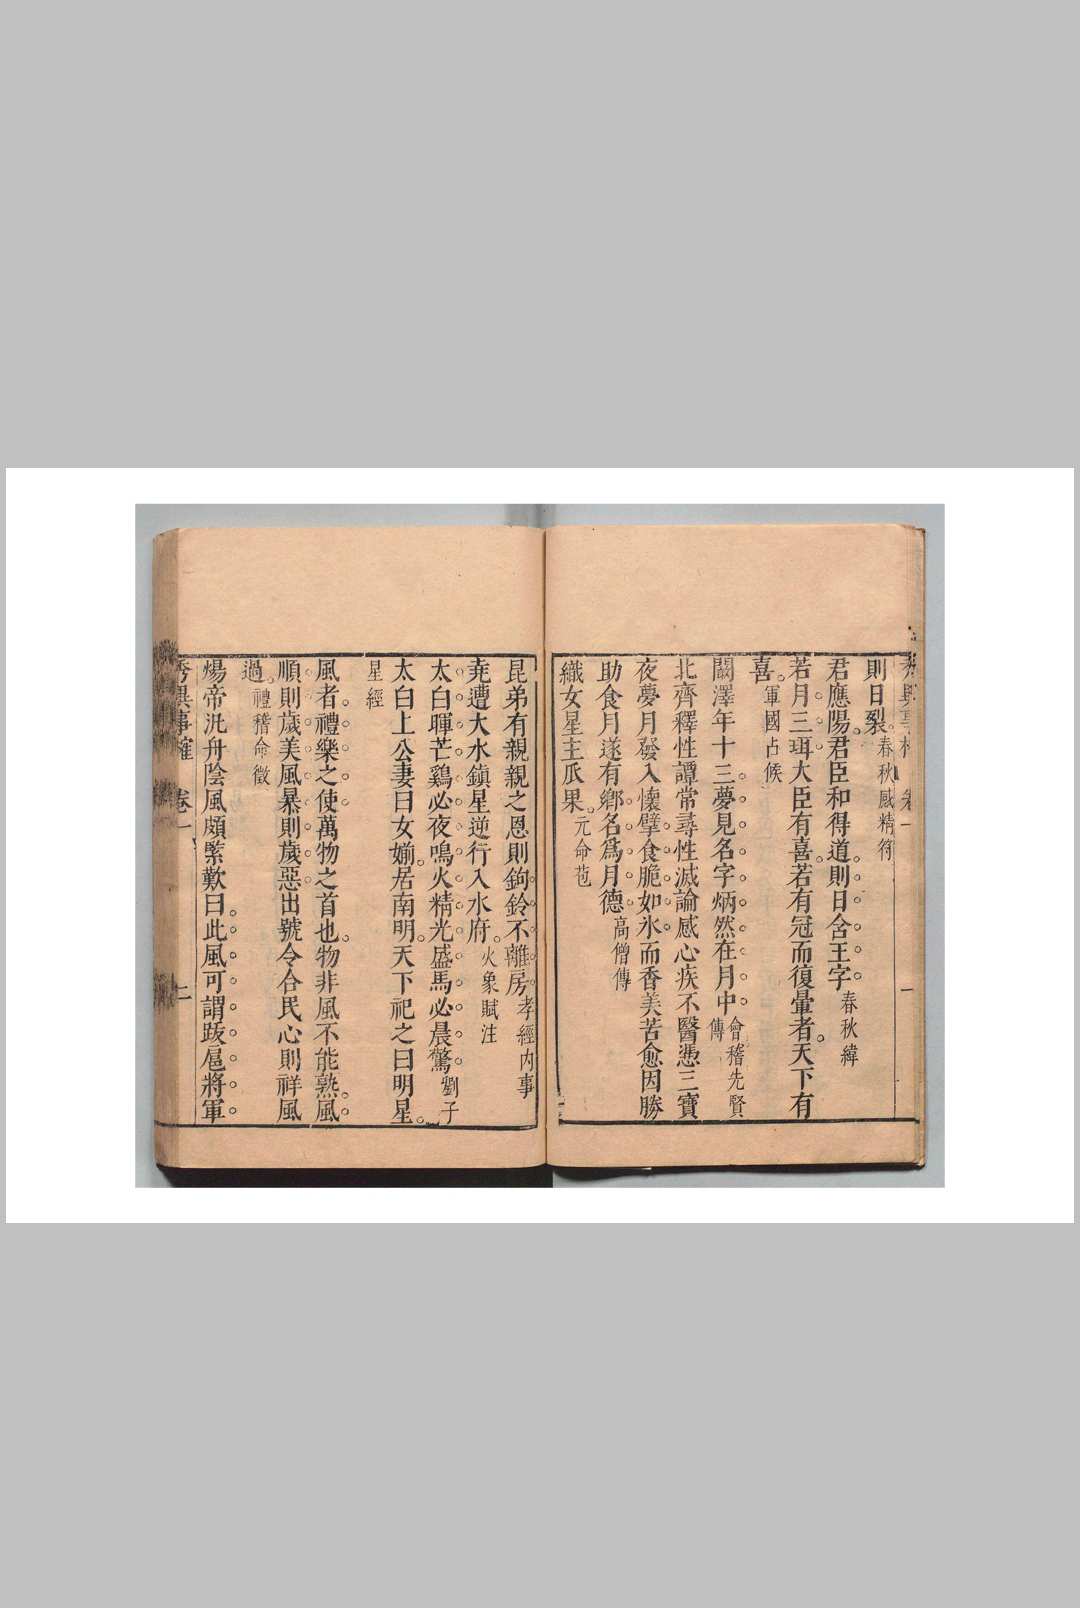 則日裂。春秋感精符
君應陽。君臣和得道。則日含王字 春秋緯
若月三珥大臣有喜。若有冠而復暈者。天下有
喜。軍國占候
闞澤年十三夢見名字炳然在月中 會稽先賢傳
北齊釋性譚常尋性滅諭感心疾不醫憑三寶
夜夢月發入懷擘食脆如氷而香美苦愈因勝
助食月遂有鄉名爲月德 高僧傳
織女星主瓜果。元命苞
昆弟有親親之恩則鉤鈴不離房 孝經内事
堯遭大水鎮星逆行入水府。火象賦注
太白暉芒鷄必夜鳴火精光盛馬必晨驚 劉子
太白上公妻曰女媊。居南明。天下祀之曰明星。
星經
風者。禮樂之使萬物之首也。物非風不能熟。風
順則歲美風暴則歲惡出號令合民心則祥風
過。禮稽命徵
煬帝汎舟陰風頗緊歎曰此風可謂跋扈將軍
事榷 卷一 二